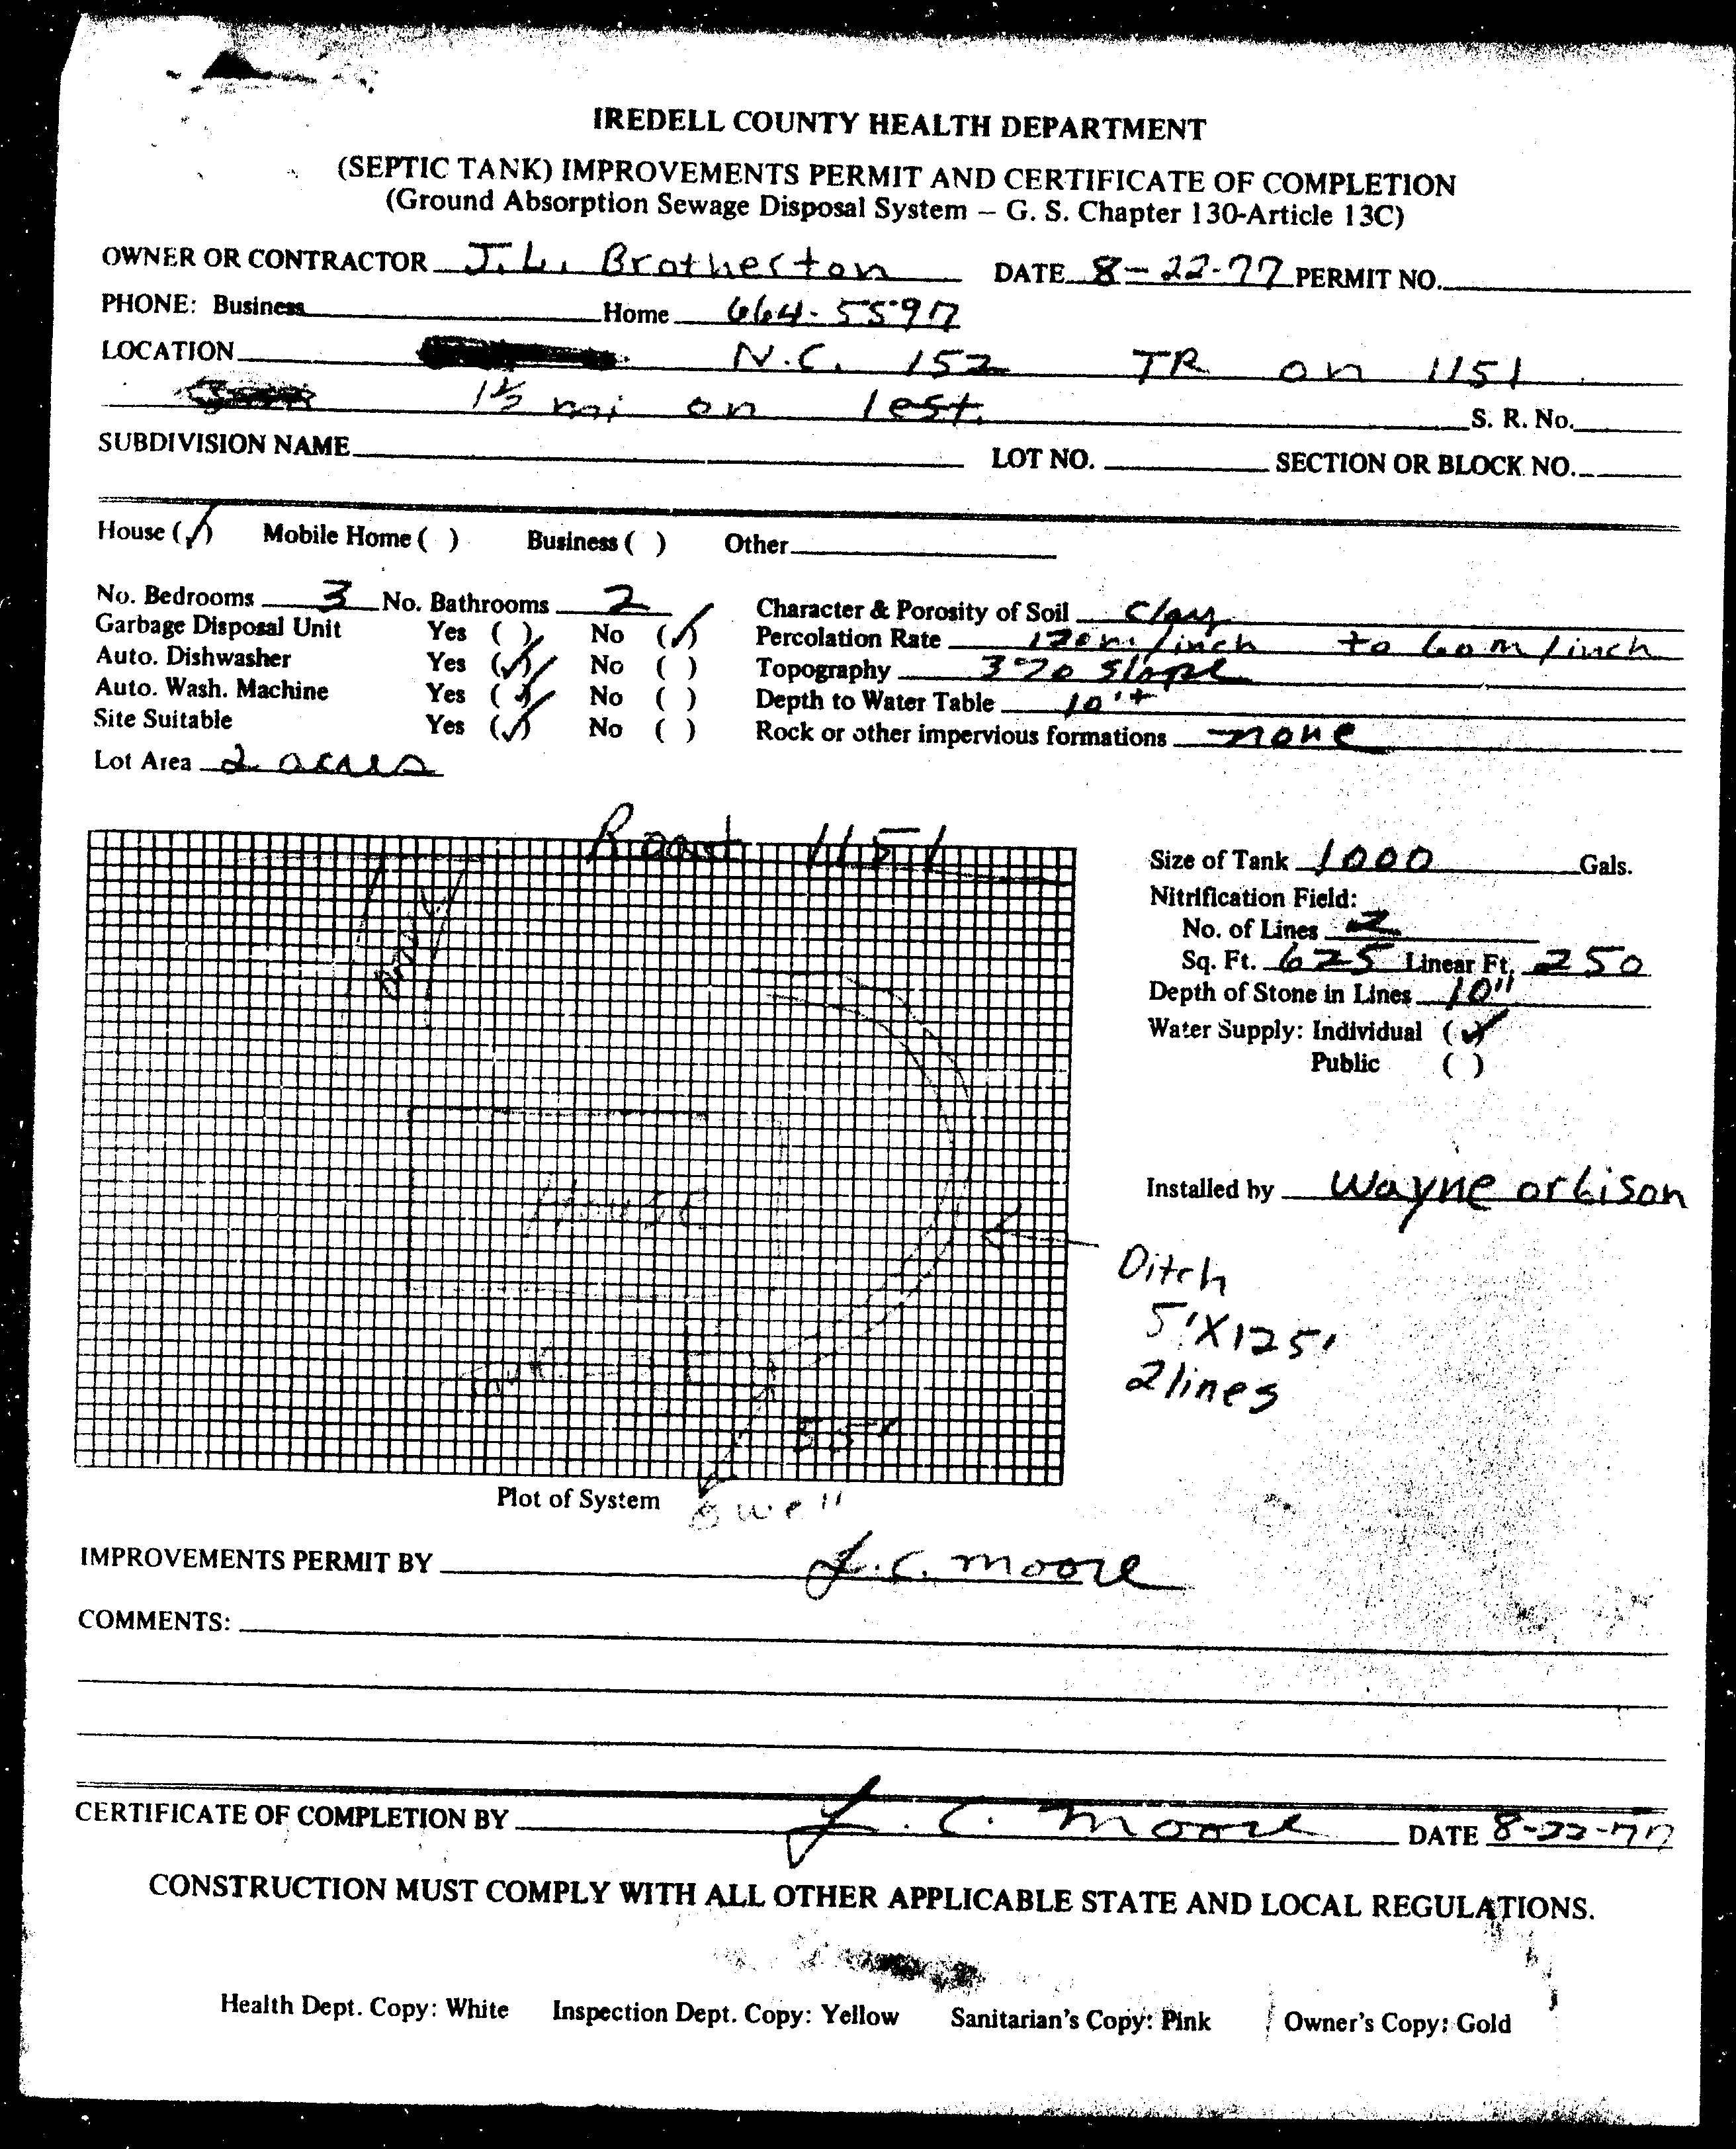 IREDELL COUNTY HEALTH DEPARTMENT
(SEPTIC TANK) IMPROVEMENTS PERMIT AND CERTIFICATE OF COMPLETION
(Ground Absorption Sewage Disposal System – G. S. Chapter 130-Article 13C)
OWNER OR CONTRACTOR J.L. Brotherton DATE 8-22-77 PERMIT NO.
PHONE: Business Home 664-5597
LOCATION N.C. 152 TR on 1151
1½ mi on left. S. R. No.
SUBDIVISION NAME LOT NO. SECTION OR BLOCK NO.
House (✓) Mobile Home ( ) Business ( ) Other
No. Bedrooms 3 No. Bathrooms 2 Character & Porosity of Soil Clay
Garbage Disposal Unit Yes ( ) No (✓) Percolation Rate 120 m/inch to 60 m/inch
Auto. Dishwasher Yes (✓) No ( ) Topography 3% slope
Auto. Wash. Machine Yes (✓) No ( ) Depth to Water Table 10'+
Site Suitable Yes (✓) No ( ) Rock or other impervious formations none
Lot Area 2 acres
Road 1151
Size of Tank 1000 Gals.
Nitrification Field:
No. of Lines 2
Sq. Ft. 625 Linear Ft. 250
Depth of Stone in Lines 10"
Water Supply: Individual (✓)
Public ( )
House
Installed by Wayne orbison
Ditch
5'X125'
2 lines
55'
Plot of System well
IMPROVEMENTS PERMIT BY L.C. Moore
COMMENTS:
CERTIFICATE OF COMPLETION BY L. C. Moore DATE 8-22-77
CONSTRUCTION MUST COMPLY WITH ALL OTHER APPLICABLE STATE AND LOCAL REGULATIONS.
Health Dept. Copy: White Inspection Dept. Copy: Yellow Sanitarian's Copy: Pink Owner's Copy: Gold